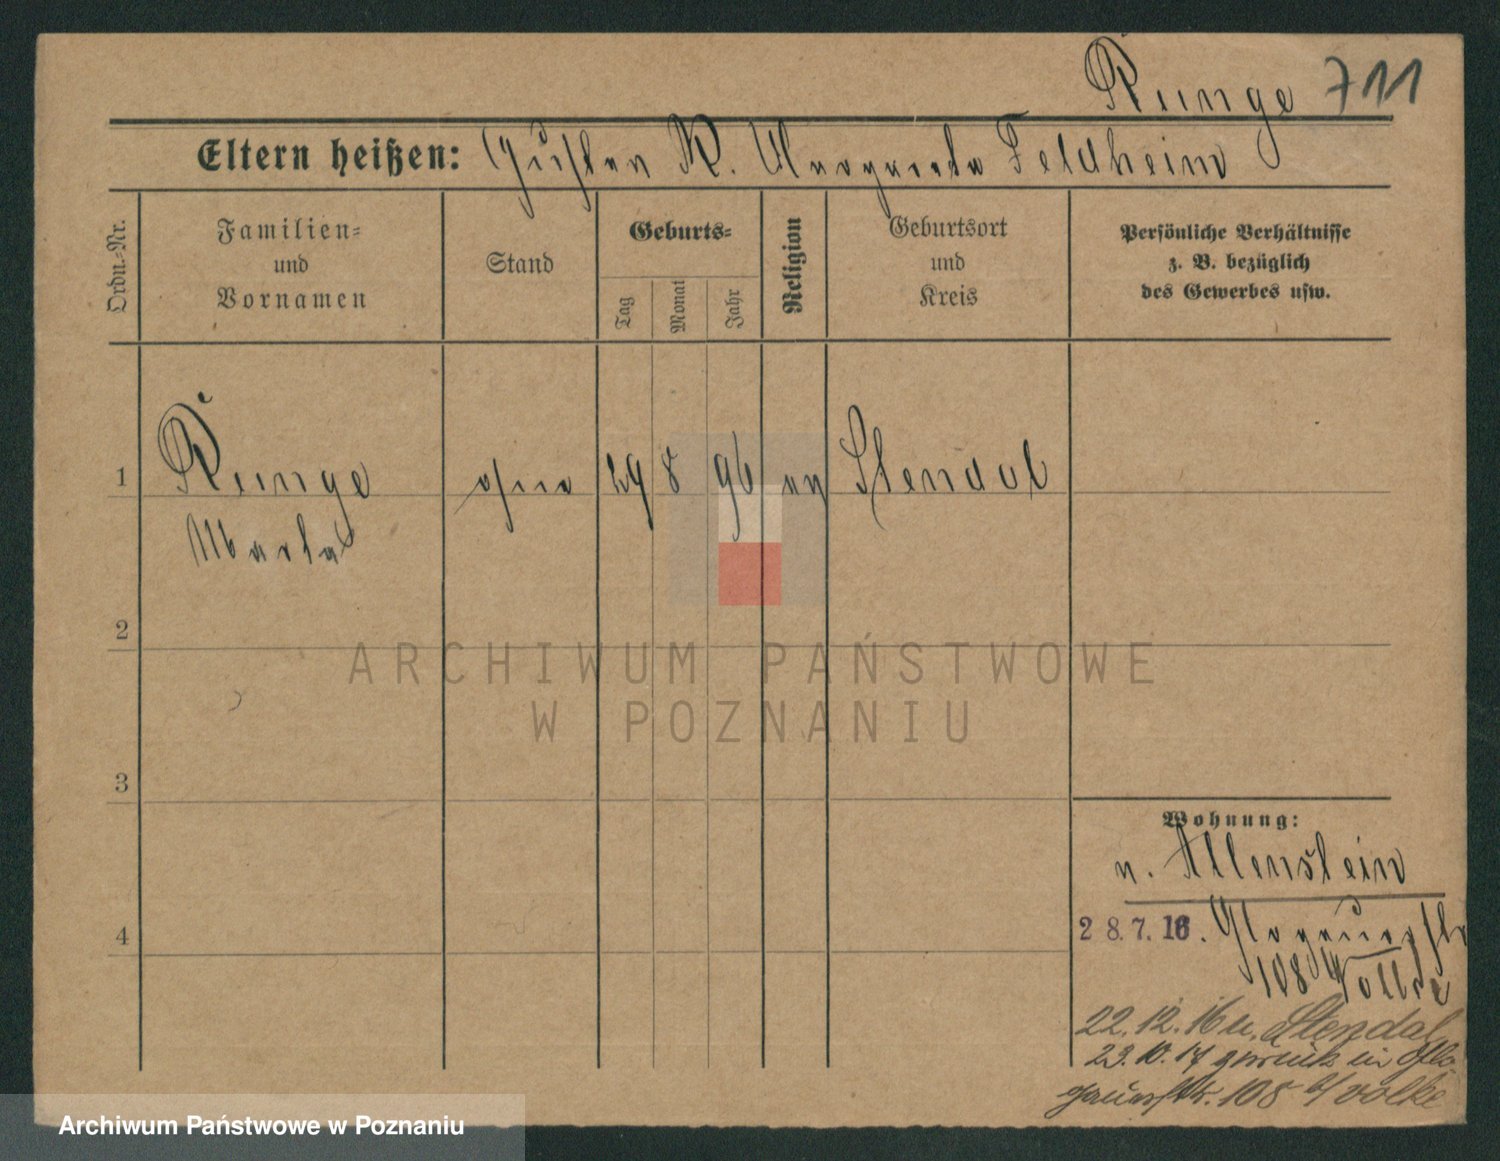 Runge 711
Eltern heißen: Gustav R. Margarete Feldheim
Ordn.-Nr.
Familien-
und
Vornamen
Stand
Geburts-
Tag
Monat
Jahr
Religion
Geburtsort
und
Kreis
Persönliche Verhältnisse
z. B. bezüglich
des Gewerbes usw.
1 Runge ohne 29 8 96 ev Stendal
Marta
2
3
4
ARCHIWUM PAŃSTWOWE
W POZNANIU
Wohnung:
n. Allenstein
28.7.16. Glogauerstr
108
22.12.16 n. Stendal
23.10.17 zurück in Glo
gauerstr. 108 b/ Volke
Archiwum Państwowe w Poznaniu